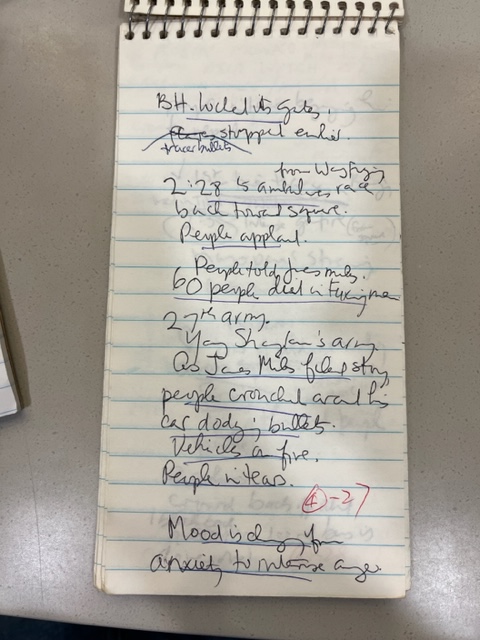 BH. locked its gates.
stopped earlier.
tracer bullets
from Wangfujing
2:28 15 ambulances race
back toward square.
People applaud.
People told James Miles
60 people died in Fuxingmen
27th army.
Yang Shangkun's army
As James Miles filed story
people crouched around his
car dodging bullets.
Vehicles on fire.
People in tears.
4-27
Mood is changing from
anxiety to intense anger.